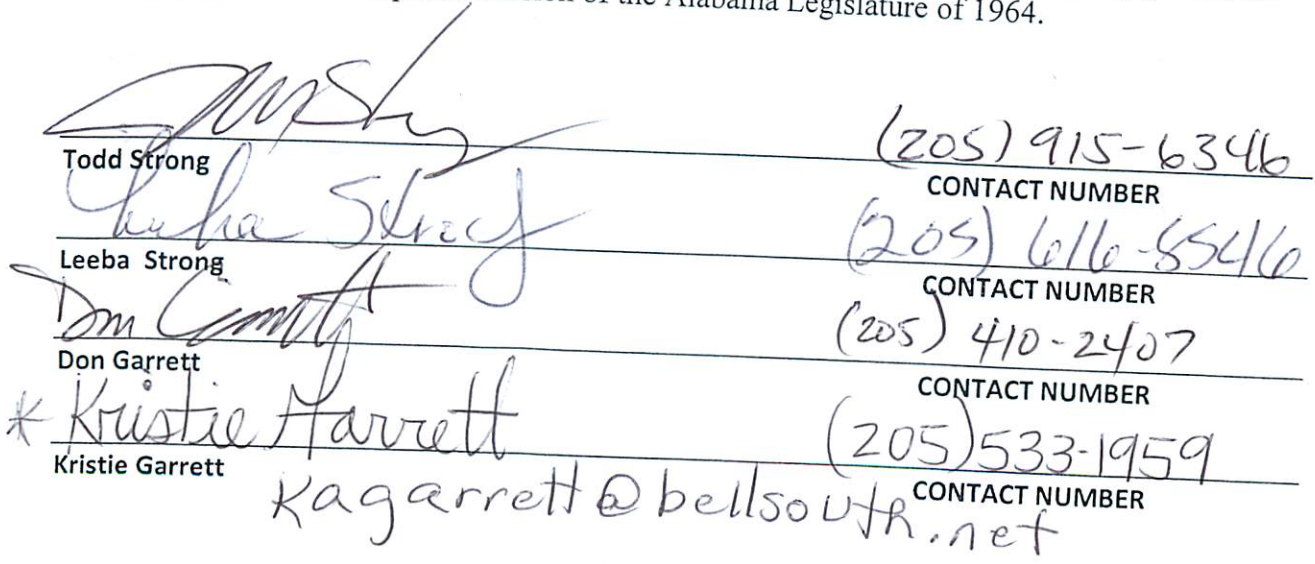 of the Alabama Legislature of 1964.
(205) 915-6346
Todd Strong
CONTACT NUMBER
Leeba Strong
(205) 616-8546
Leeba Strong
CONTACT NUMBER
Don Garrett
(205) 410-2407
Don Garrett
CONTACT NUMBER
* Kristie Garrett
(205) 533-1959
Kristie Garrett
CONTACT NUMBER
kagarrett@bellsouth.net